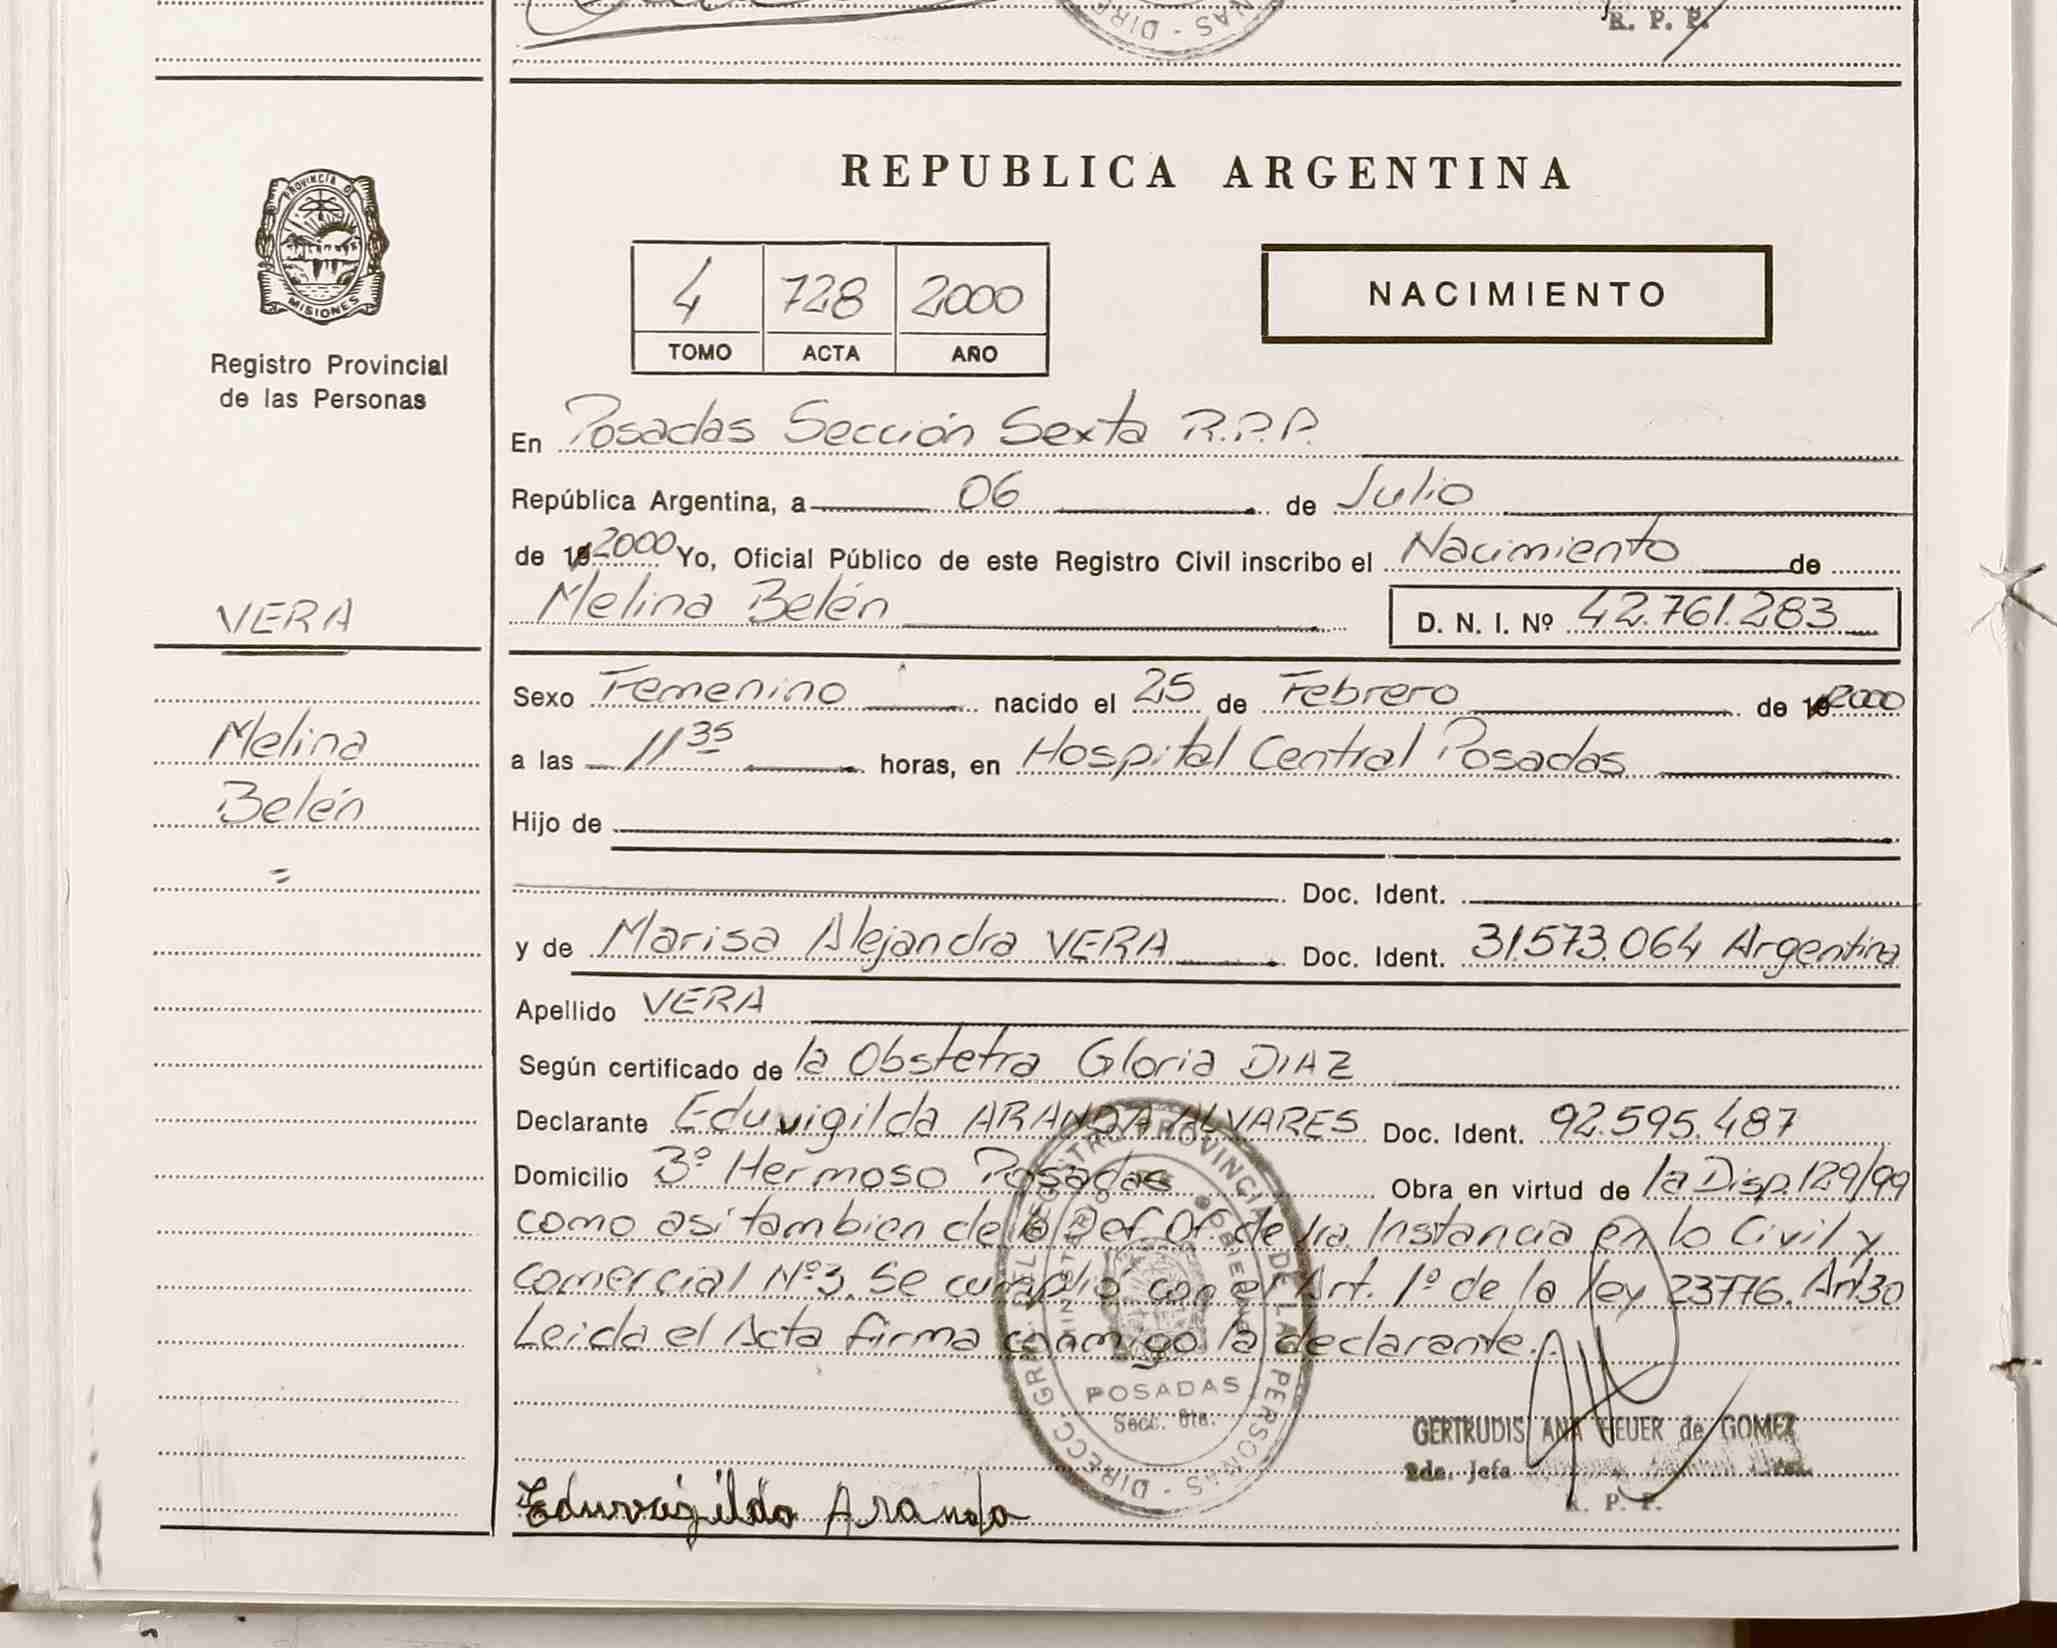 R. P. P.
REPUBLICA ARGENTINA
PROVINCIA DE
MISIONES
Registro Provincial
de las Personas
4 728 2000
TOMO ACTA AÑO
NACIMIENTO
En Posadas Sección Sexta R.P.P.
República Argentina, a 06 de Julio
de 19 2000 Yo, Oficial Público de este Registro Civil inscribo el Nacimiento de
VERA
Melina Belén D. N. I. Nº 42.761.283
Sexo Femenino nacido el 25 de Febrero de 19 2000
Melina
Belén
=
a las 11 35 horas, en Hospital Central Posadas
Hijo de
Doc. Ident.
y de Marisa Alejandra VERA Doc. Ident. 31.573.064 Argentina
Apellido VERA
Según certificado de la Obstetra Gloria DIAZ
Declarante Eduvigilda ARANDA ALVARES Doc. Ident. 92.595.487
Domicilio Bº Hermoso Posadas Obra en virtud de la Disp. 129/99
como asi tambien de la Def. Of. de 1ra. Instancia en lo Civil y
Comercial Nº3. Se cumplió con el Art. 1º de la ley 23776. Art 30
Leida el Acta firma conmigo la declarante.
DIRECC. GRAL. DEL REGISTRO PROVINCIAL DE LAS PERSONAS
POSADAS
Secc. 6ta.
GERTRUDIS ANA HEUER de GOMEZ
2da. Jefa
R. P. P.
Eduvigilda Aranda